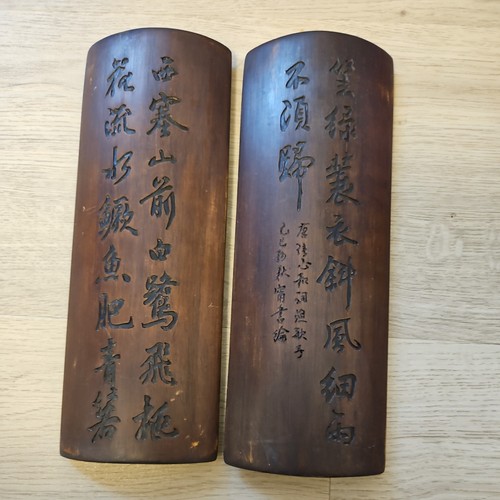 西塞山前白鷺飛桃
花流水鱖魚肥青箬
笠綠蓑衣斜風細雨
不須歸
唐張志和詞漁歌子
己巳初秋